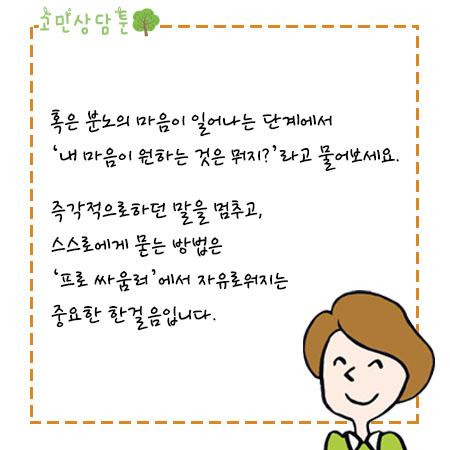 고민상담툰
혹은 분노의 마음이 일어나는 단계에서
‘내 마음이 원하는 것은 뭐지?’라고 물어보세요.
즉각적으로하던 말을 멈추고,
스스로에게 묻는 방법은
‘프로 싸움러’에서 자유로워지는
중요한 한걸음입니다.